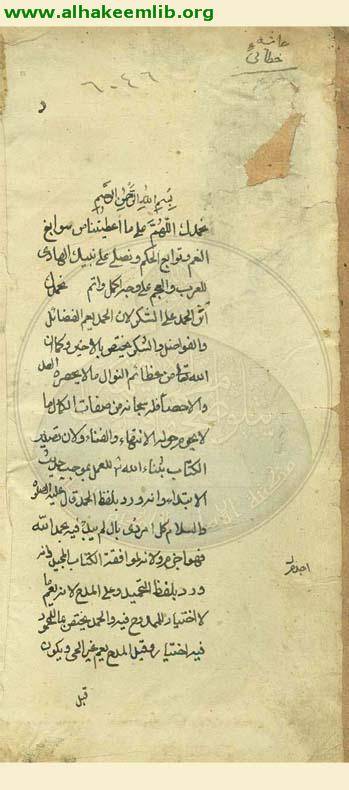 www.alhakeemlib.org
حاشية
خطائي
٦٠٤٦
بسم الله الرحمن الرحيم
نحمدك اللهم على ما اعطيتنا من سوابغ
النعم وتوابع الحكم ونصلى على نبيك الهادى
للعرب والعجم على وجه اكمل واتم نحمدك
آثر الحمد على الشكر لان الحمد يعم الفضائل
والفواضل والشكر يختص بالاخير وكما ان
الله تعالى من عظائم النوال ما لا يحصره العد
والاحصاء فله سبحانه من صفات الكمال ما
لا حوله الانتهاء والفناء ولان تصدير
الكتاب بثناء الله للعمل بموجب حديث
الابتداء وانه ورد بلفظ الحمد قال عليه الصلوة
والسلام كل امر ذى بال لم يبدأ فيه بحمد الله
فهو اجزم ولانه لموافقة الكتاب المجيد فانه
ورد بلفظ التحميد وعلى المدح لانه يعم ما
لا اختيار للممدوح فيه والحمد يختص بما للمحمود
فيه اختيار وقيل المدح يعم غير الحى ويكون
قبل